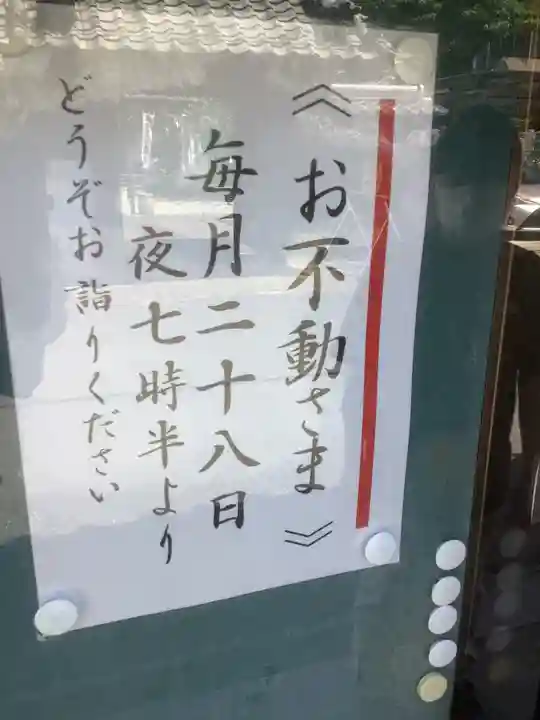 《お不動さま》
毎月二十八日
夜七時半より
どうぞお詣りください